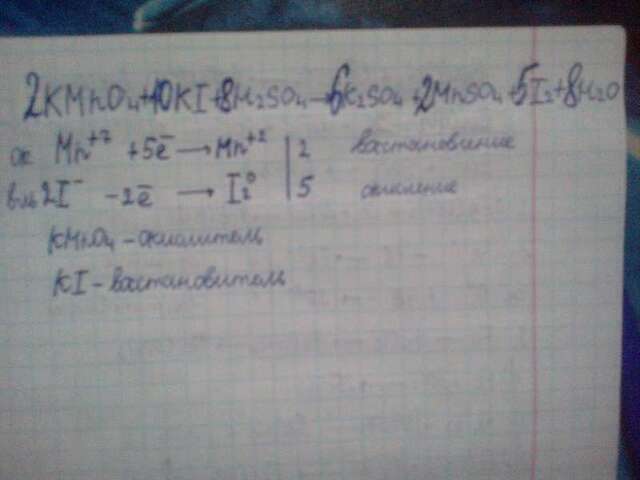 2KMnO₄+10KI+8H₂SO₄→6K₂SO₄+2MnSO₄+5I₂+8H₂O
ок Mn⁺⁷ +5e̅ → Mn⁺² | 2 востановление
в-ль 2I⁻ -2e̅ → I₂⁰ | 5 окисление
KMnO₄ - окислитель
KI - востановитель